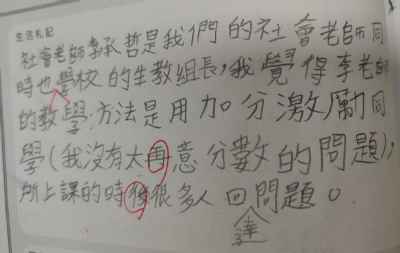 生活札記
社會老師李承哲是我們的社會老師同
時也學校的生教組長,我覺得李老師
的教學方法是用加分激勵同
學(我沒有太再意分數的問題),
所上課的時後很多人回問題。
達